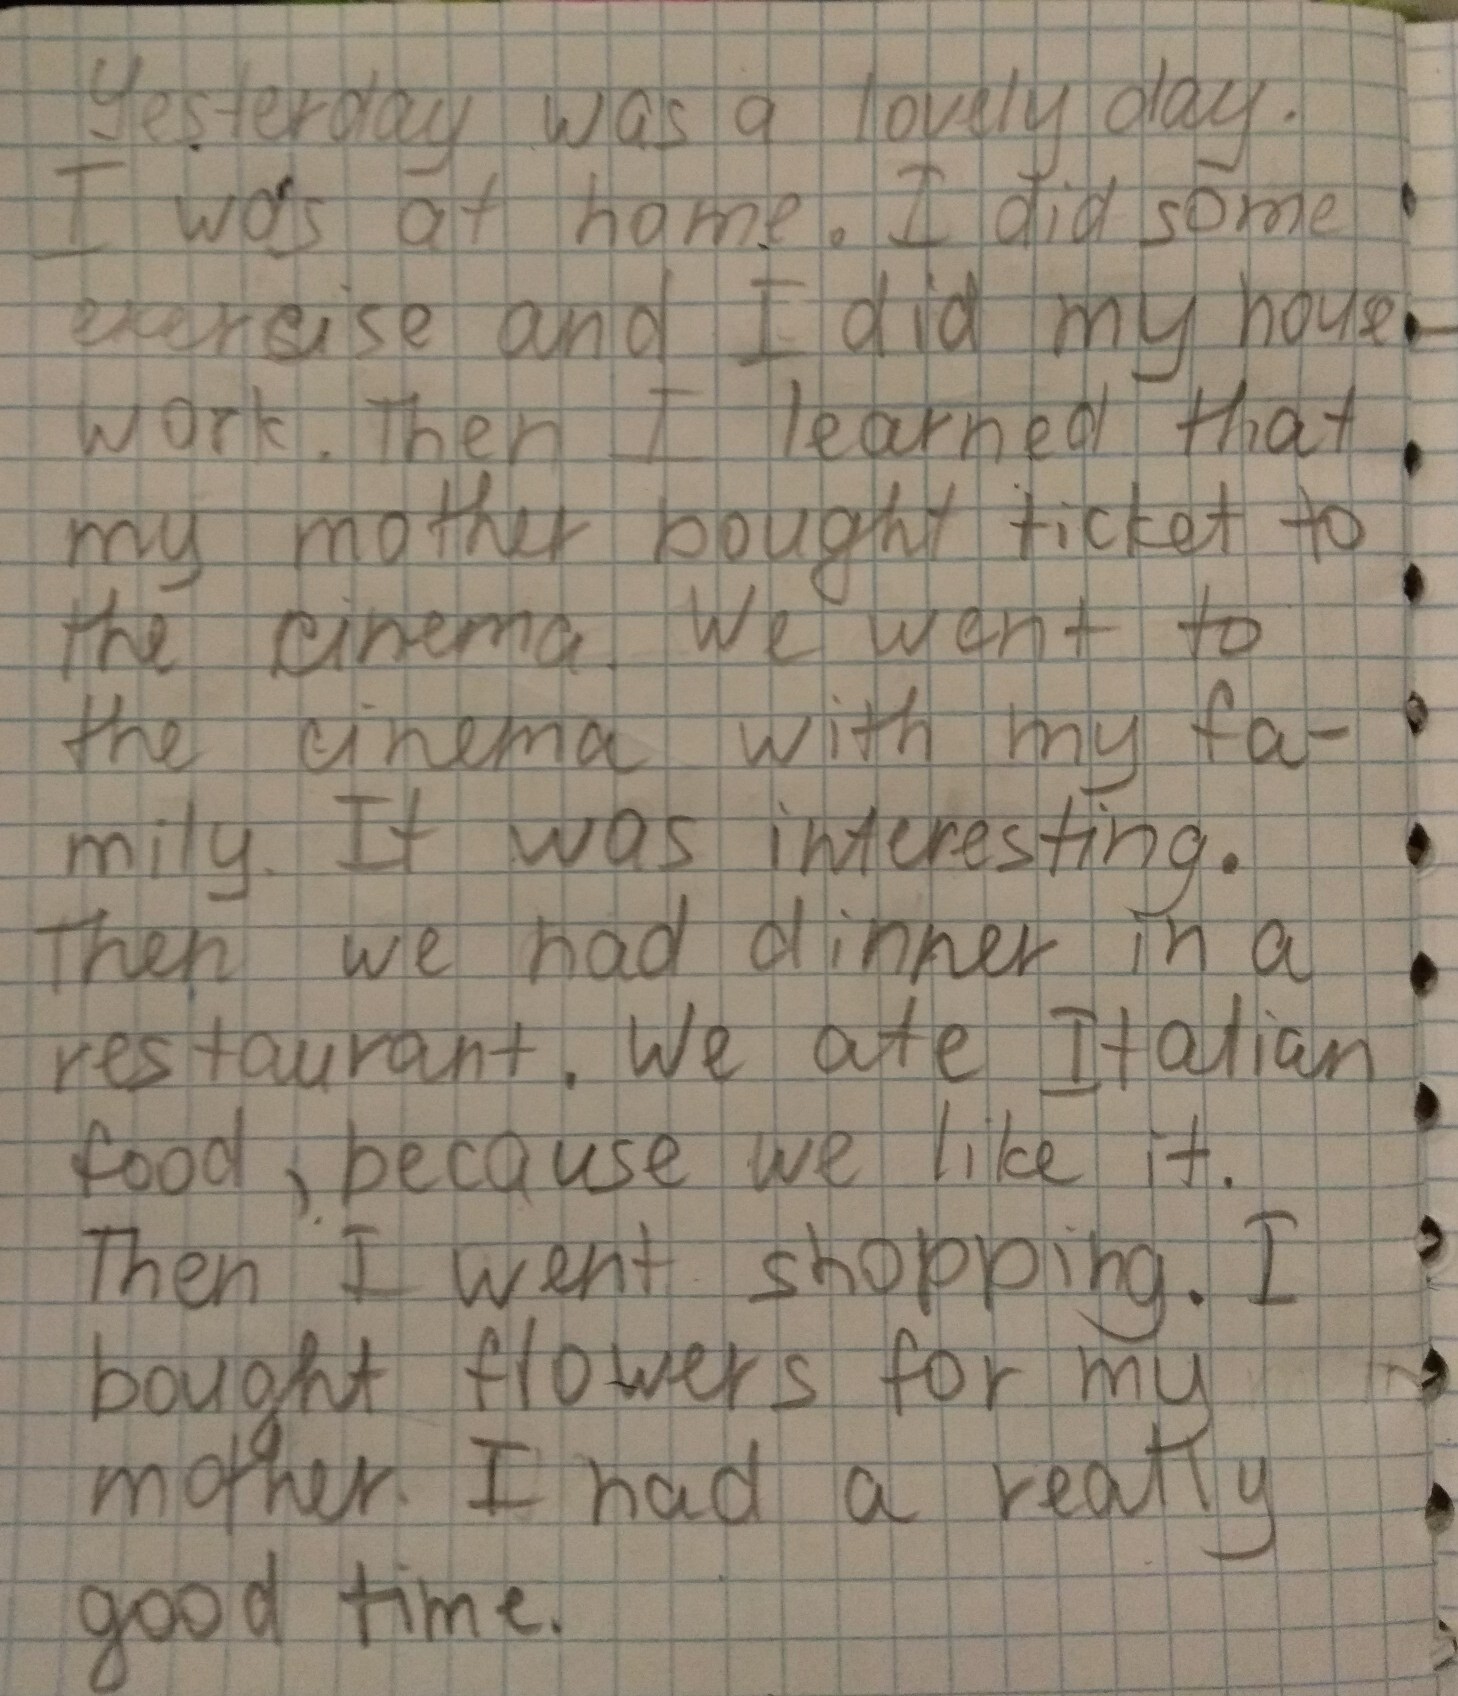 Yesterday was a lovely day.
I was at home. I did some
exercise and I did my house
work. Then I learned that
my mother bought ticket to
the cinema. We went to
the cinema with my fa-
mily. It was interesting.
Then we had dinner in a
restaurant. We ate Italian
food, because we like it.
Then I went shopping. I
bought flowers for my
mother. I had a really
good time.